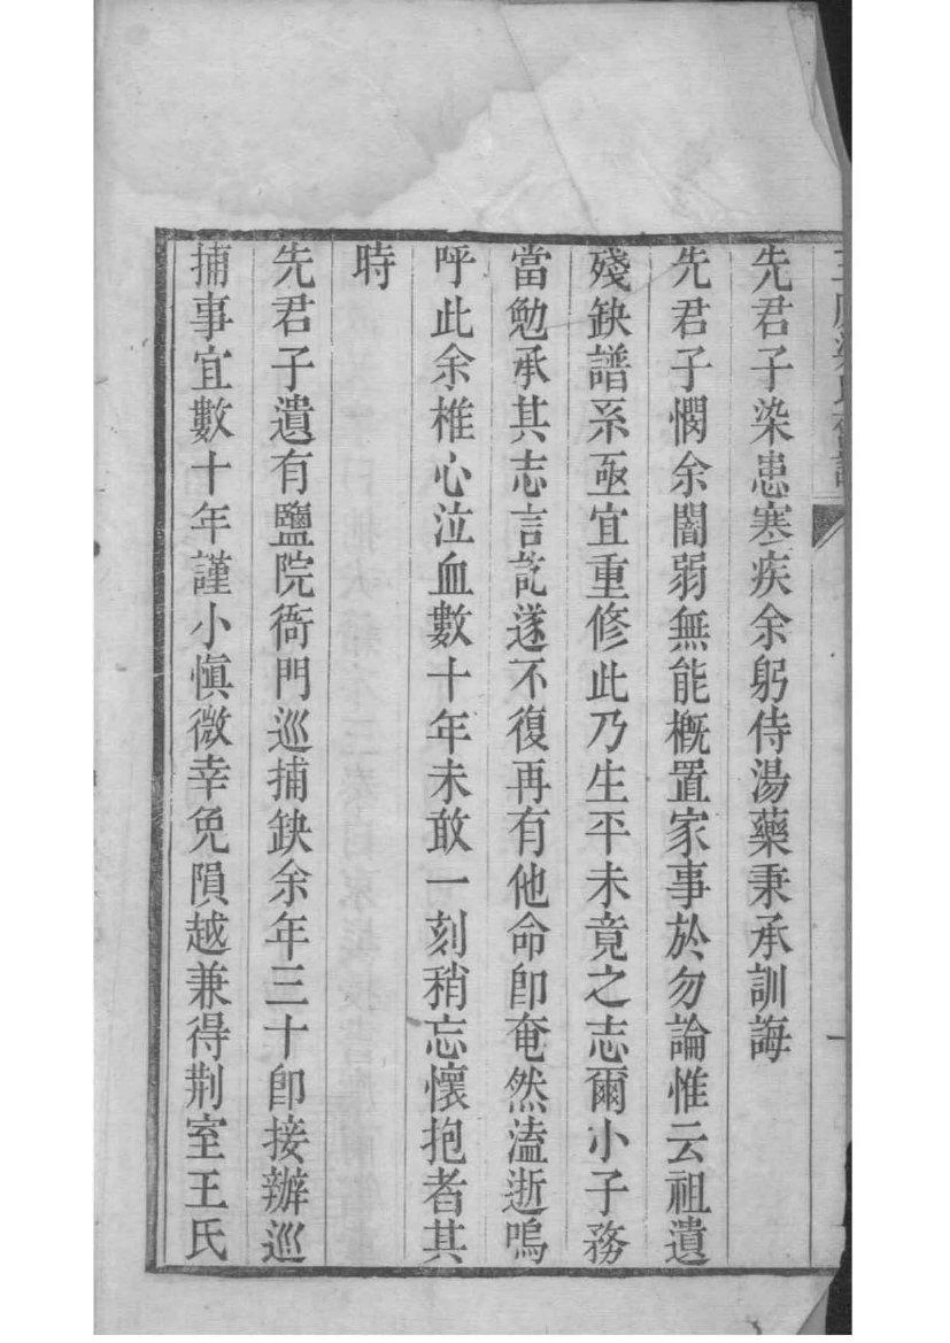 先君子染患寒疾余躬侍湯藥秉承訓誨
先君子憫余闇弱無能概置家事於勿論惟云祖遺
殘缺譜系亟宜重修此乃生平未竟之志爾小子務
當勉承其志言訖遂不復再有他命卽奄然溘逝嗚
呼此余椎心泣血數十年未敢一刻稍忘懷抱者其
時
先君子遺有鹽院衙門巡捕缺余年三十卽接辦巡
捕事宜數十年謹小慎微幸免隕越兼得荆室王氏